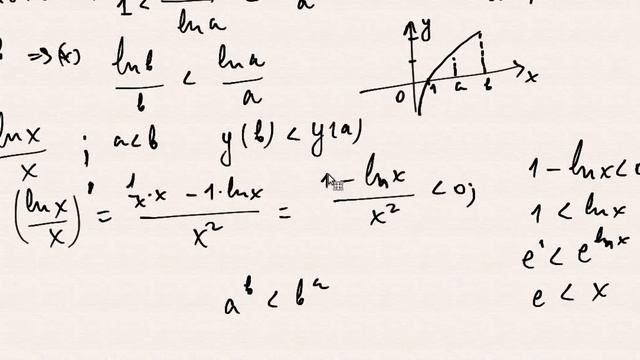 1 < — a
ln a
b ⇒ (x) ln b / b < ln a / a
y
x
0 1 a b
ln x / x ; a<b y(b) < y(a)
(ln x / x)' = (1/x · x − 1 · ln x) / x² = (1 − ln x) / x² < 0;
1 − ln x < 0
1 < ln x
e¹ < e^{ln x}
e < x
a^b < b^a